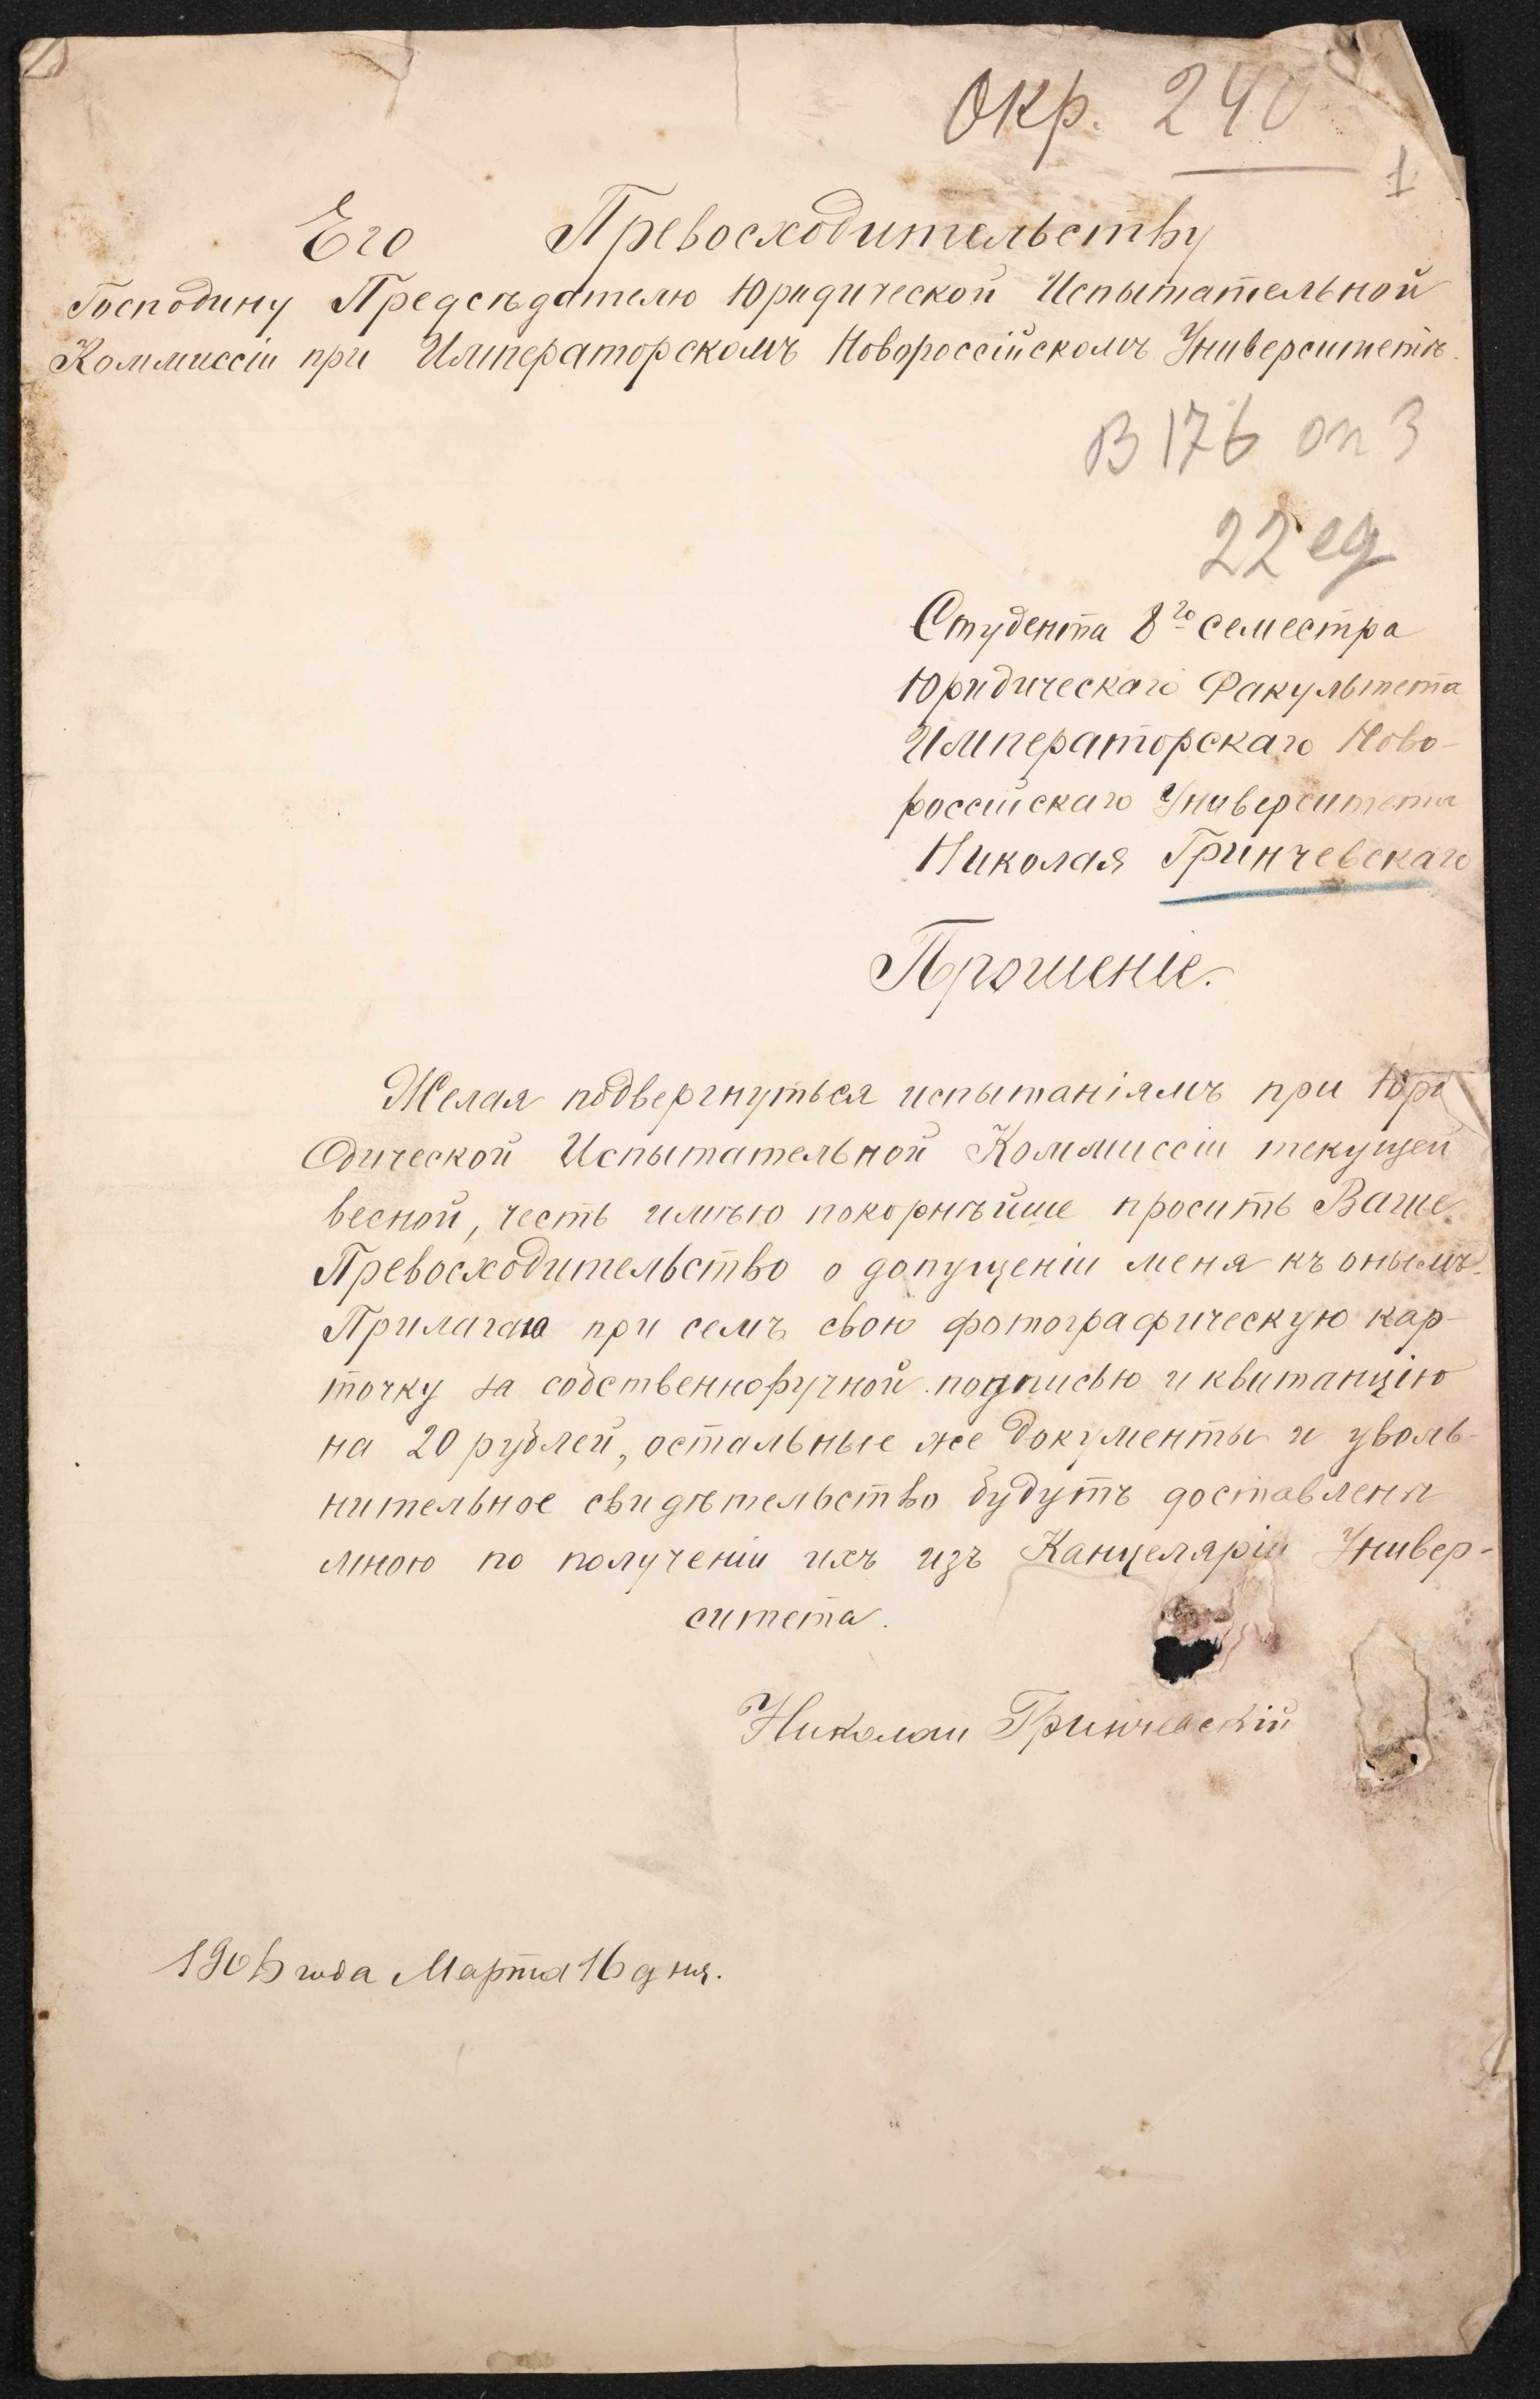 Окр. 240
1
Его Превосходительству
Господину Предсѣдателю Юридической Испытательной
Коммиссіи при Императорскомъ Новороссійскомъ Университетѣ.
В 176 оп 3
22 ед
Студента 8го семестра
Юридическаго Факультета
Императорскаго Ново-
россійскаго Университета
Николая Гринчевскаго
Прошеніе.
Желая подвергнуться испытаніямъ при Юри
дической Испытательной Коммиссіи текущей
весной, честь имѣю покорнѣйше просить Ваше
Превосходительство о допущеніи меня къ онымъ.
Прилагаю при семъ свою фотографическую кар-
точку за собственноручной подписью и квитанцію
на 20 рублей, остальные же документы и уволь-
нительное свидѣтельство будутъ доставлены
мною по полученіи ихъ изъ Канцеляріи Универ-
ситета.
Николай Гринчевскій
года Марта 16 дня.